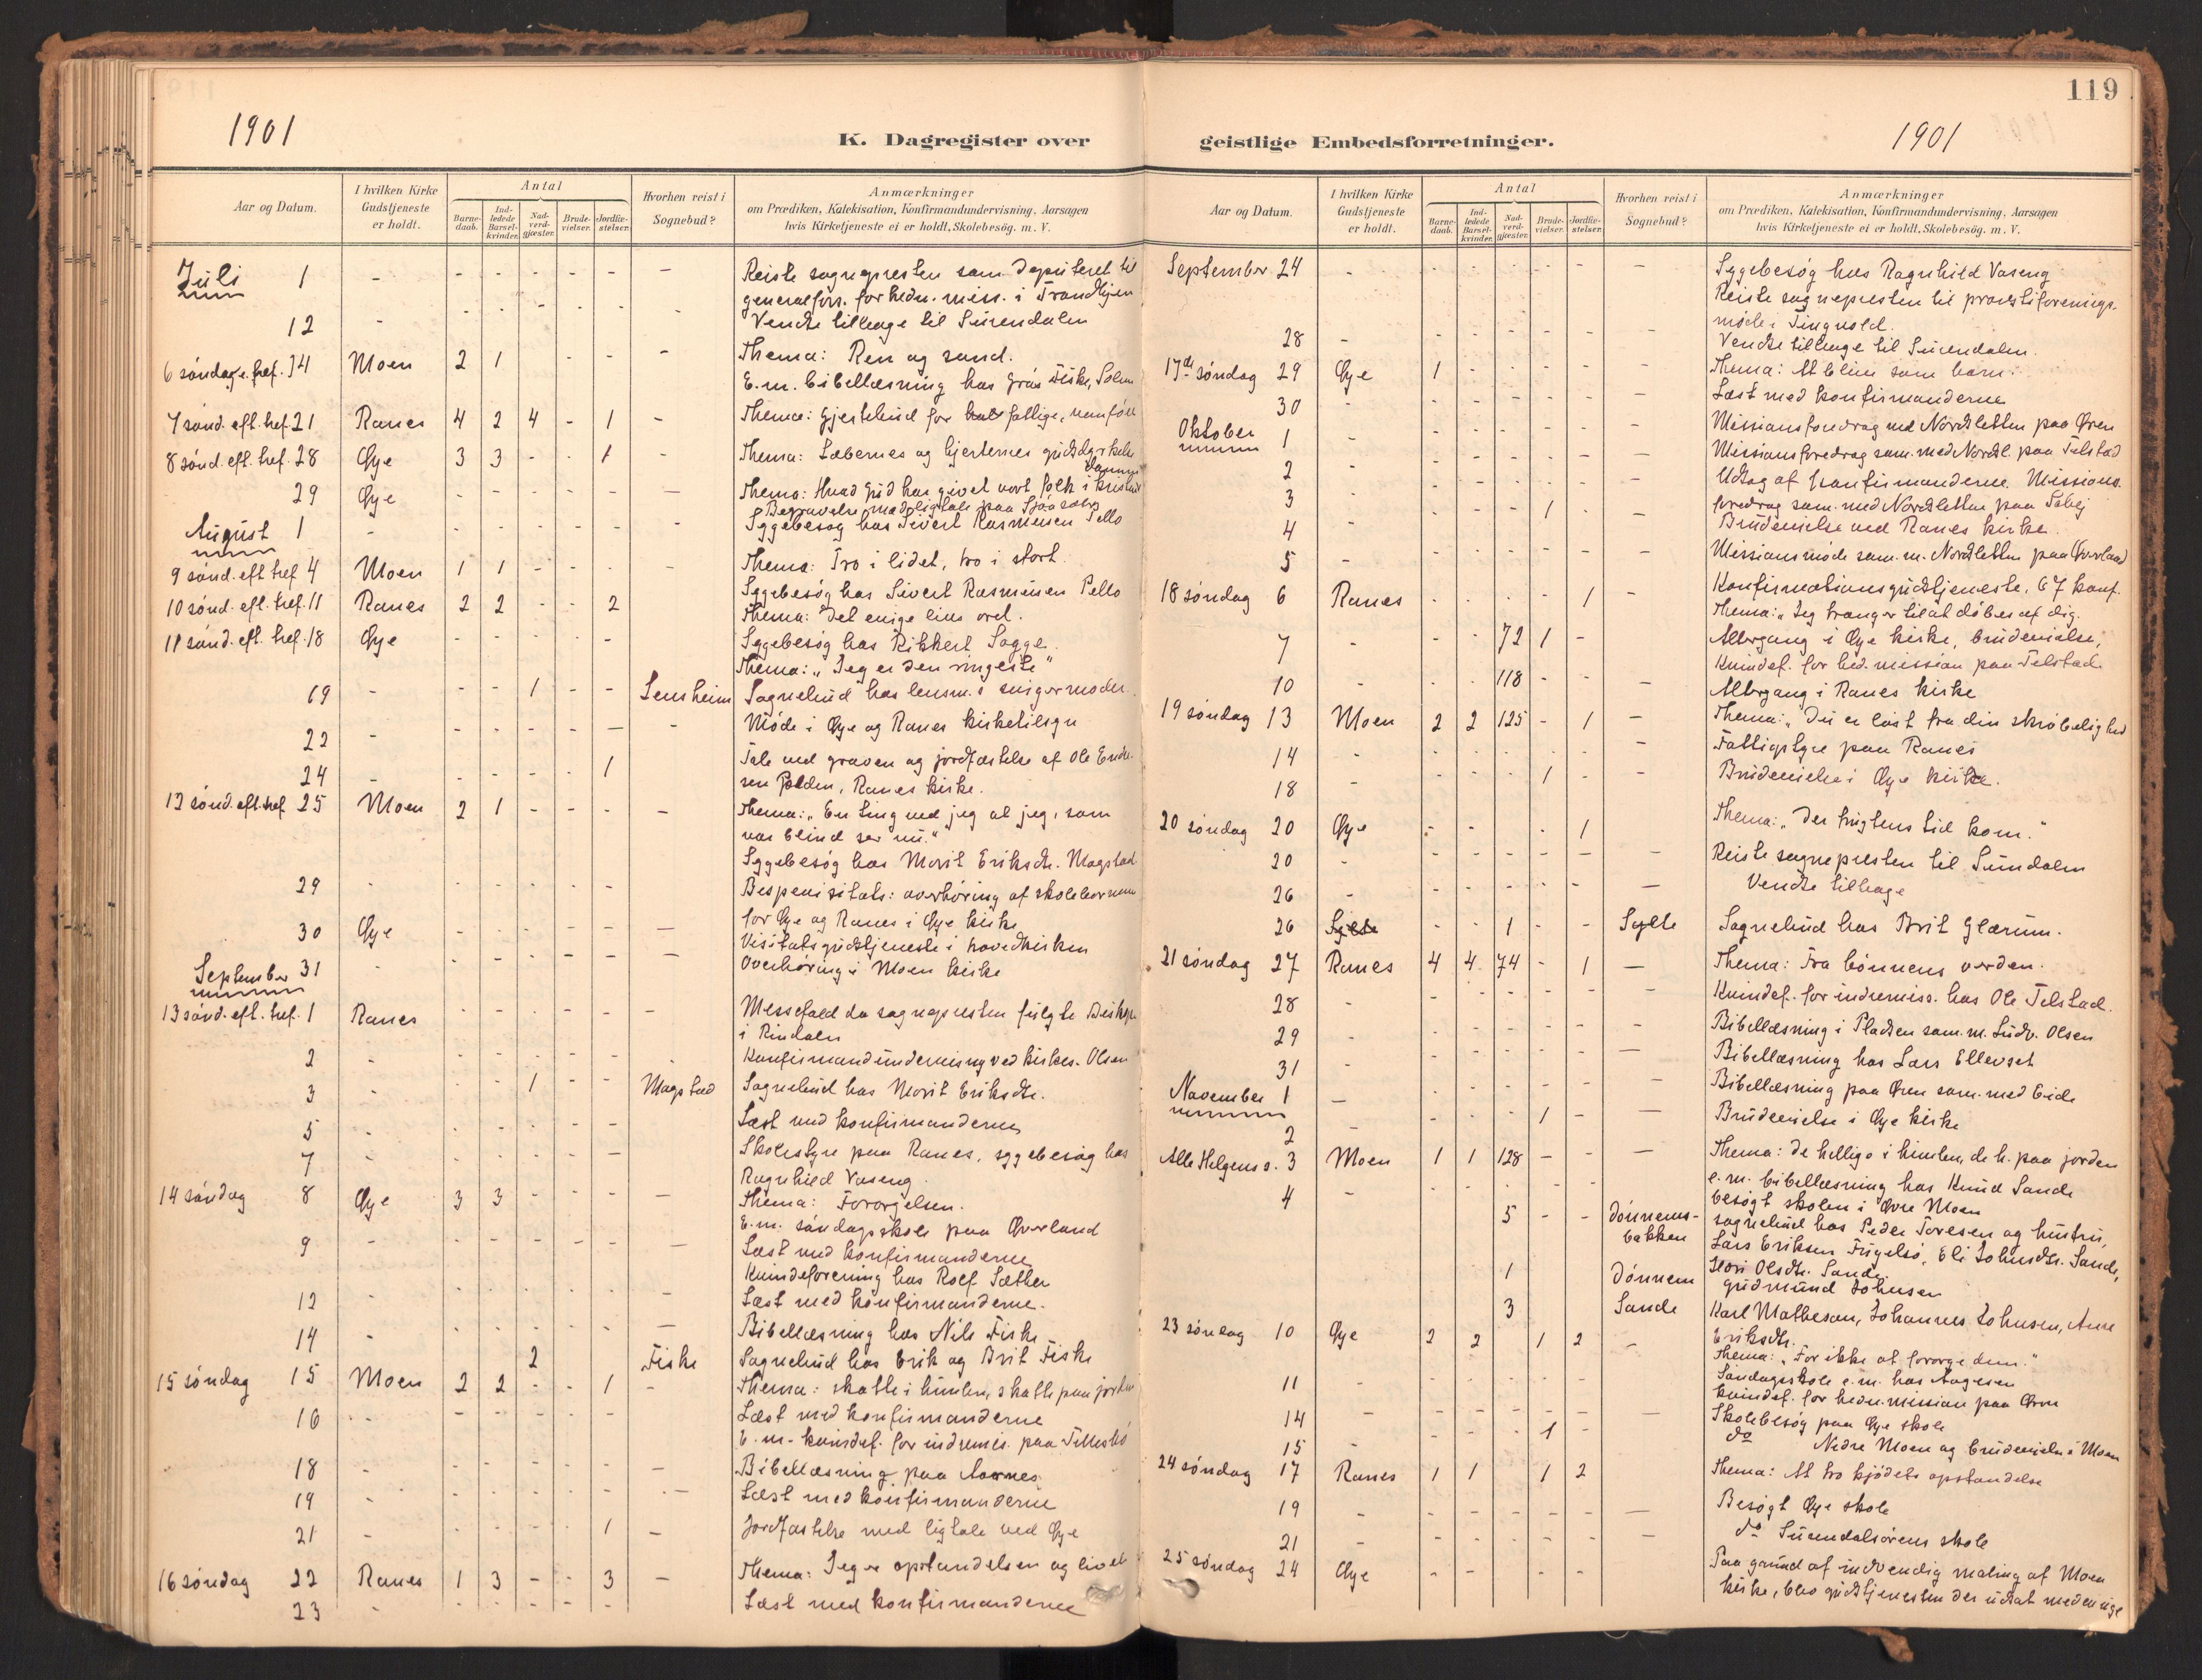 119
1901
K. Dagregister over
Aar og Datum.
I hvilken Kirke Gudstjeneste er holdt.
Antal
Barnedaab.
Indledede Barselkvinder.
Nadverdgjæster.
Brudevielser.
Jordfæstelser.
Hvorhen reist i Sognebud?
Anmærkninger
om Prædiken, Katekisation, Konfirmandundervisning, Aarsagen
hvis Kirketjeneste ei er holdt, Skolebesøg. m. V.
Juli 1 - - - - - - - Reiste sognepresten som deputeret til
generalfors. for hedn. miss. i Trondhjem
12 - - - - - - - Vendte tilbage til Surendalen
6 søndag e. tref. 14 Moen 2 1 - - - - Thema: Ren og sand.
E.m. bibellæsning hos Gros Fiske,
7 sønd. eft. tref. 21 Ranes 4 2 4 - 1 - Thema: Gjestebud for fattige,
8 sønd. eft. tref. 28 Øye 3 3 - - 1 - Thema: Læbernes og hjerternes gudsdyrkelse
29 Øye - - - - - - Thema: Hvad Gud har givet vort folk i
Begravelse med ligtale paa
August 1 - - - - - - - Sygebesøg hos Sivert Rasmusen Pello
9 sønd. eft. tref. 4 Moen 1 1 - - - - Thema: Tro i lidet, tro i stort.
10 sønd. eft. tref. 11 Ranes 2 2 - - 2 Sygebesøg hos Sivert Rasmusen Pello
Thema: Det evige livs ord.
11 sønd. eft. tref. 18 Øye - - - - - Sygebesøg hos Rikkert Sogge.
Thema: "Jeg er den ringeste"
19 - - - 1 - - Lensheim Sognebud hos lensm.s svigermoder.
22 - - - - - - - Møde i Øye og Ranes kirketilsyn
24 - - - - - 1 Tale ved graven og jordfæstelse af Ole
sen Polden, Ranes kirke.
12 sønd. eft. tref. 25 Moen 2 1 - - - - Thema: "En ting ved jeg at jeg, som
var blind ser nu."
Sygebesøg hos Marit Eriksdtr. Mogstad
29 - - - - - - Bespevisitats: overhøring af skolebørnene
for Øye og Ranes i Øye kirke
30 Øye - - - - - - Visitatsgudstjeneste i hovedkirken
31 - - - - - - - Overhøring i Moen kirke
September
13 sønd. eft. tref. 1 Ranes - - - - - - Messefald da sognepresten fulgte
i Rindalen
2 - - - - - - - Konfirmandundervisning ved kirkes. Olsen
3 - - - 1 - - Mogstad Sognebud hos Marit Eriksdtr.
5 - - - - - - - Læst med konfirmanderne
7 - - - - - - - Skolestyre paa Ranes, sygebesøg hos
Ragnhild Vaseng.
14 søndag 8 Øye 3 3 - - - - Thema: Forargelsen.
E.m. søndagsskole paa Øverland
9 - - - - - - - Læst med konfirmanderne
Kvindeforening hos Rolf Sæther
12 - - - - - - - Læst med konfirmanderne.
14 - - - - - - - Bibellæsning hos Nils Fiske
2 Fiske Sognebud hos Erik og Brit Fiske
15 søndag 15 Moen 2 2 - - 1 - Thema: skatte i himlen, skatte paa jorden
16 - - - - - - - Læst med konfirmanderne
E.m. kvindef. for indremis. paa
18 - - - - - - - Bibellæsning paa Aarnes
19 - - - - - - - Læst med konfirmanderne
21 - - - - - 1 - Jordfæstelse med ligtale ved Øye
16 søndag 22 Ranes 1 3 - - 3 - Thema: Jeg er opstandelsen og livet
23 - - - - - - Læst med konfirmanderne
geistlige Embedsforretninger.
1901
Aar og Datum.
I hvilken Kirke Gudstjeneste er holdt.
Antal
Barnedaab.
Indledede Barselkvinder.
Nadverdgjæster.
Brudevielser.
Jordfæstelser.
Hvorhen reist i Sognebud?
Anmærkninger
om Prædiken, Katekisation, Konfirmandundervisning, Aarsagen
hvis Kirketjeneste ei er holdt, Skolebesøg. m. V.
September 24 - - - - - - - Sygebesøg hos Ragnhild Vaseng
Reiste sognepresten til provstiforenings-
møde i Tingvold.
28 - - - - - - - Vendte tilbage til Surendalen.
17de søndag 29 Øye 1 - - - - - Thema: At blive som barn.
30 - - - - - - - Læst med konfirmanderne
Oktober 1 - - - - - - - Missionsforedrag ved Nordsletten paa Øren
2 - - - - - - - Missionsforedrag sam. med Nordsl. paa Telstad
3 - - - - - - - Udtog af konfirmanderne. Missions-
foredrag sam. med Nordsletten paa
4 - - - - 1 - - Brudevielse ved Ranes kirke.
5 - - - - - - - Missionsmøde sam. m. Nordsletten paa Øverland
18 søndag 6 Ranes - - - - 1 - Konfirmationsgudstjeneste, 67 konf.
Thema: "Jeg trænger til at døbes af dig.
7 - - - 72 1 - Altergang i Øye kirke, brudevielse,
Kvindef. for hed. mission paa Telstad.
10 - - - 118 - - - Altergang i Ranes kirke
19 søndag 13 Moen 2 2 125 - 1 - Thema: "Du er løst fra din skrøbelighed
14 - - - - - - - Fattigstyre paa Ranes
18 - - - - 1 - - Brudevielse i Øye kirke.
20 søndag 20 Øye - - - - 1 Thema: "Der frugtens tid kom."
20 - - - - - - - Reiste sognepresten til Sundalen
26 - - - - - - - Vendte tilbage
26 - - 1 - - Sylte Sognebud hos Brit Glærum.
21 søndag 27 Ranes 4 4 74 - 1 - Thema: Fra bønnens verden.
28 - - - - - - - Kvindef. for indremiss. hos Ole Telstad.
29 - - - - - - - Bibellæsning i Pladsen sam. m. Ludv. Olsen
31 - - - - - - - Bibellæsning hos Lars Ellevset
November 1 - - - - - - - Bibellæsning paa Øren sam. med Eide
2 - - - - 1 - - Brudevielse i Øye kirke
Alle Helgens s. 3 Moen 1 1 128 - - - Thema: de hellige i himlen, de h. paa jorden
e.m. bibellæsning hos Knud Sande
4 - - - - - - - besøgt skolen i Øvre Moen
5 - - Dønnems-bakken sognebud hos Peder Toresen og hustru,
Lars Eriksen Fugelsø, Eli Johnsdtr. Sande,
Olsdtr. Sande
1 Dønnem Gudmund Johnsen
3 Sande Karl Matheson, Johannes Johnsen, Anne
Eriksdtr.
23 søndag 10 Øye 2 2 1 2 - Thema: "For ikke at forarge dem."
Søndagsskole e.m. hos Aagesen
11 - - - - - - - kvindef. for hedn. mission paa Øren
14 - - - - - - - Skolebesøg paa Øye skole
15 - - - - 1 - do Nedre Moen og brudevielse i Moen
24 søndag 17 Ranes 1 1 1 2 Thema: At tro kjødets opstandelse
19 - - - - - - - Besøgt Øye skole
21 - - - - - - - do Surendalsørens skole
25 søndag 24 Øye - - - - - Paa grund af indvendig maling af Moen
kirke, blev gudstjenesten der udsat